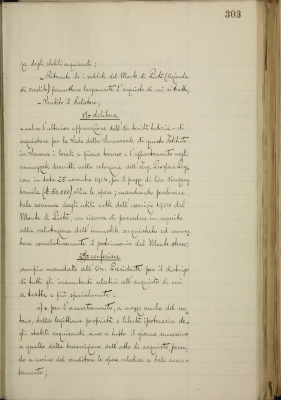 303
za degli stabili acquisendi;
- Ritenuto che i redditi del Monte di Pietà (Azienda
di credito) permettono largamente l'acquisto di cui si tratta;
- Sentito il Relatore;
Ha deliberato
- salva l'ulteriore approvazione dell'Autorità tutoria - di
acquistare per la Sede della Succursale di questo Istituto
in Savona i locali a piano terreno e l'appartamento negli
ammezzati descritti nella relazione dell'Ing.
con in data 25 novembre 1904, per il prezzo di lire cinquan-
tamila (£ 50.000) oltre le spese; mandando prelevare
tale somma dagli utili netti dell'esercizio 1904 del
Monte di Pietà, con riserva di procedere in seguito
alla valutazione dell'immobile acquistato ed aumen-
tare correlativamente il patrimonio del Monte stesso;
Ha conferito
ampio mandato all'On. Presidente per il disbrigo
di tutti gli incombenti relativi all'acquisto di cui
si tratta e più specialmente:
a) per l'accertamento, a mezzo anche del no-
taio, della legittima proprietà e libertà ipotecaria de-
gli stabili acquisendi sino a tutto il giorno successivo
a quello della trascrizione dell'atto di acquisto, ponen-
do a carico del venditore le spese relative a tale accer-
tamento;